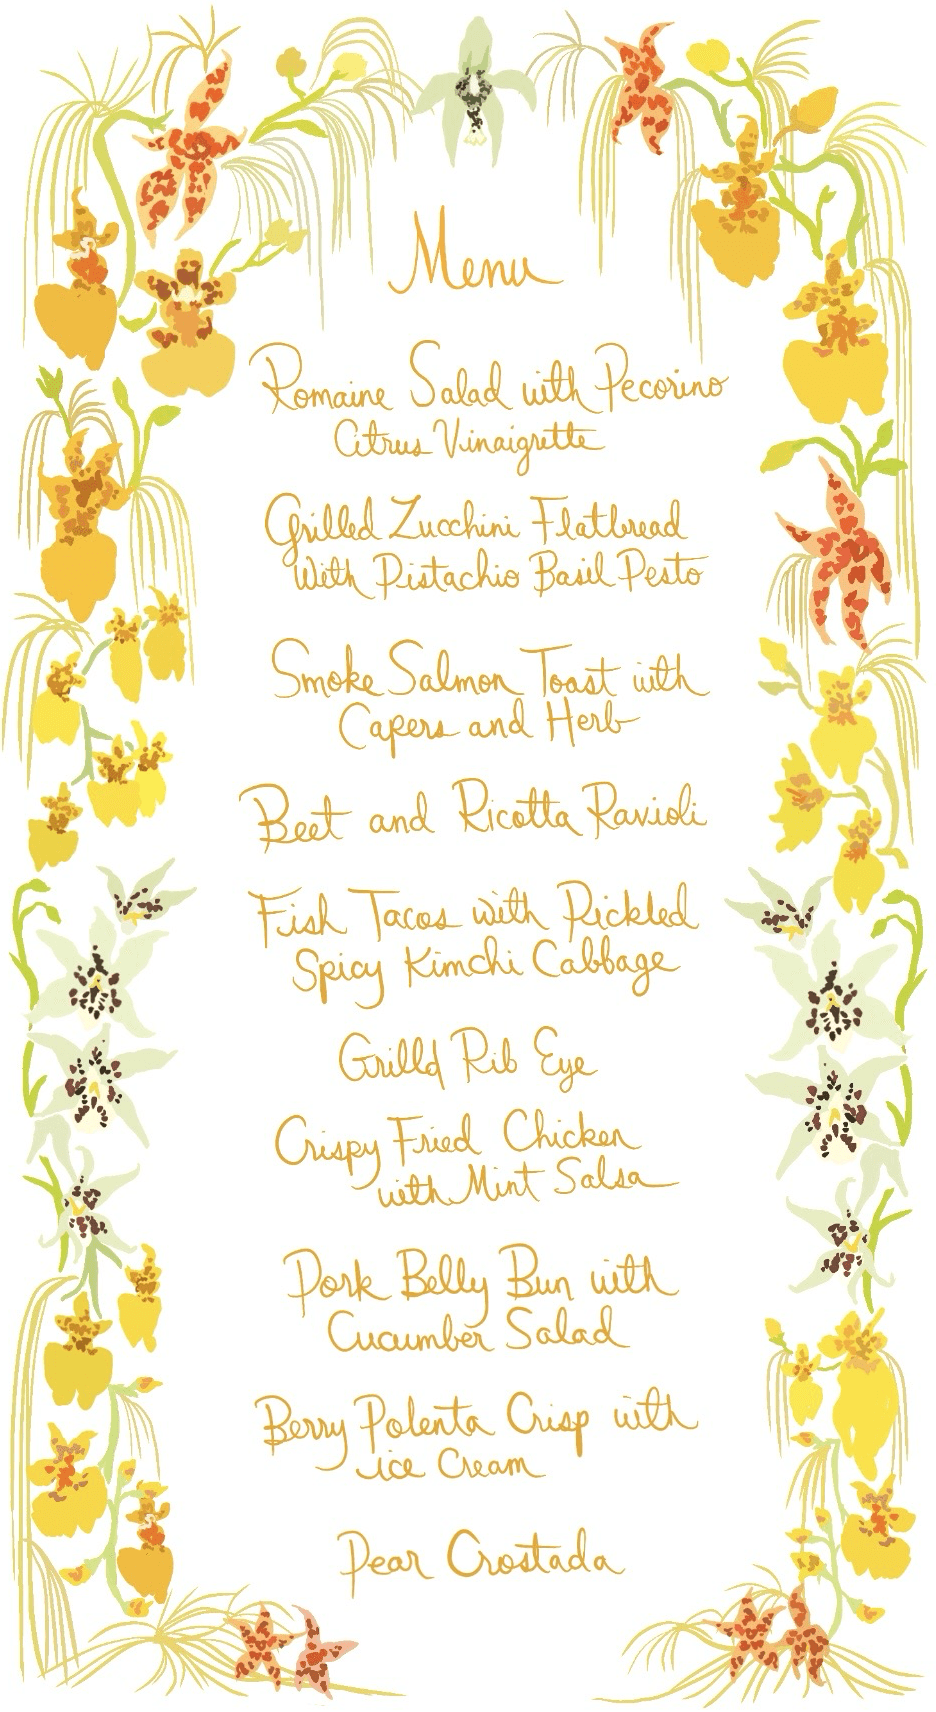 Menu
Romaine Salad with Pecorino
Citrus Vinaigrette
Grilled Zucchini Flatbread
With Pistachio Basil Pesto
Smoke Salmon Toast with
Capers and Herb
Beet and Ricotta Ravioli
Fish Tacos with Pickled
Spicy Kimchi Cabbage
Grilld Rib Eye
Crispy Fried Chicken
with Mint Salsa
Pork Belly Bun with
Cucumber Salad
Berry Polenta Crisp with
ice Cream
Pear Crostada